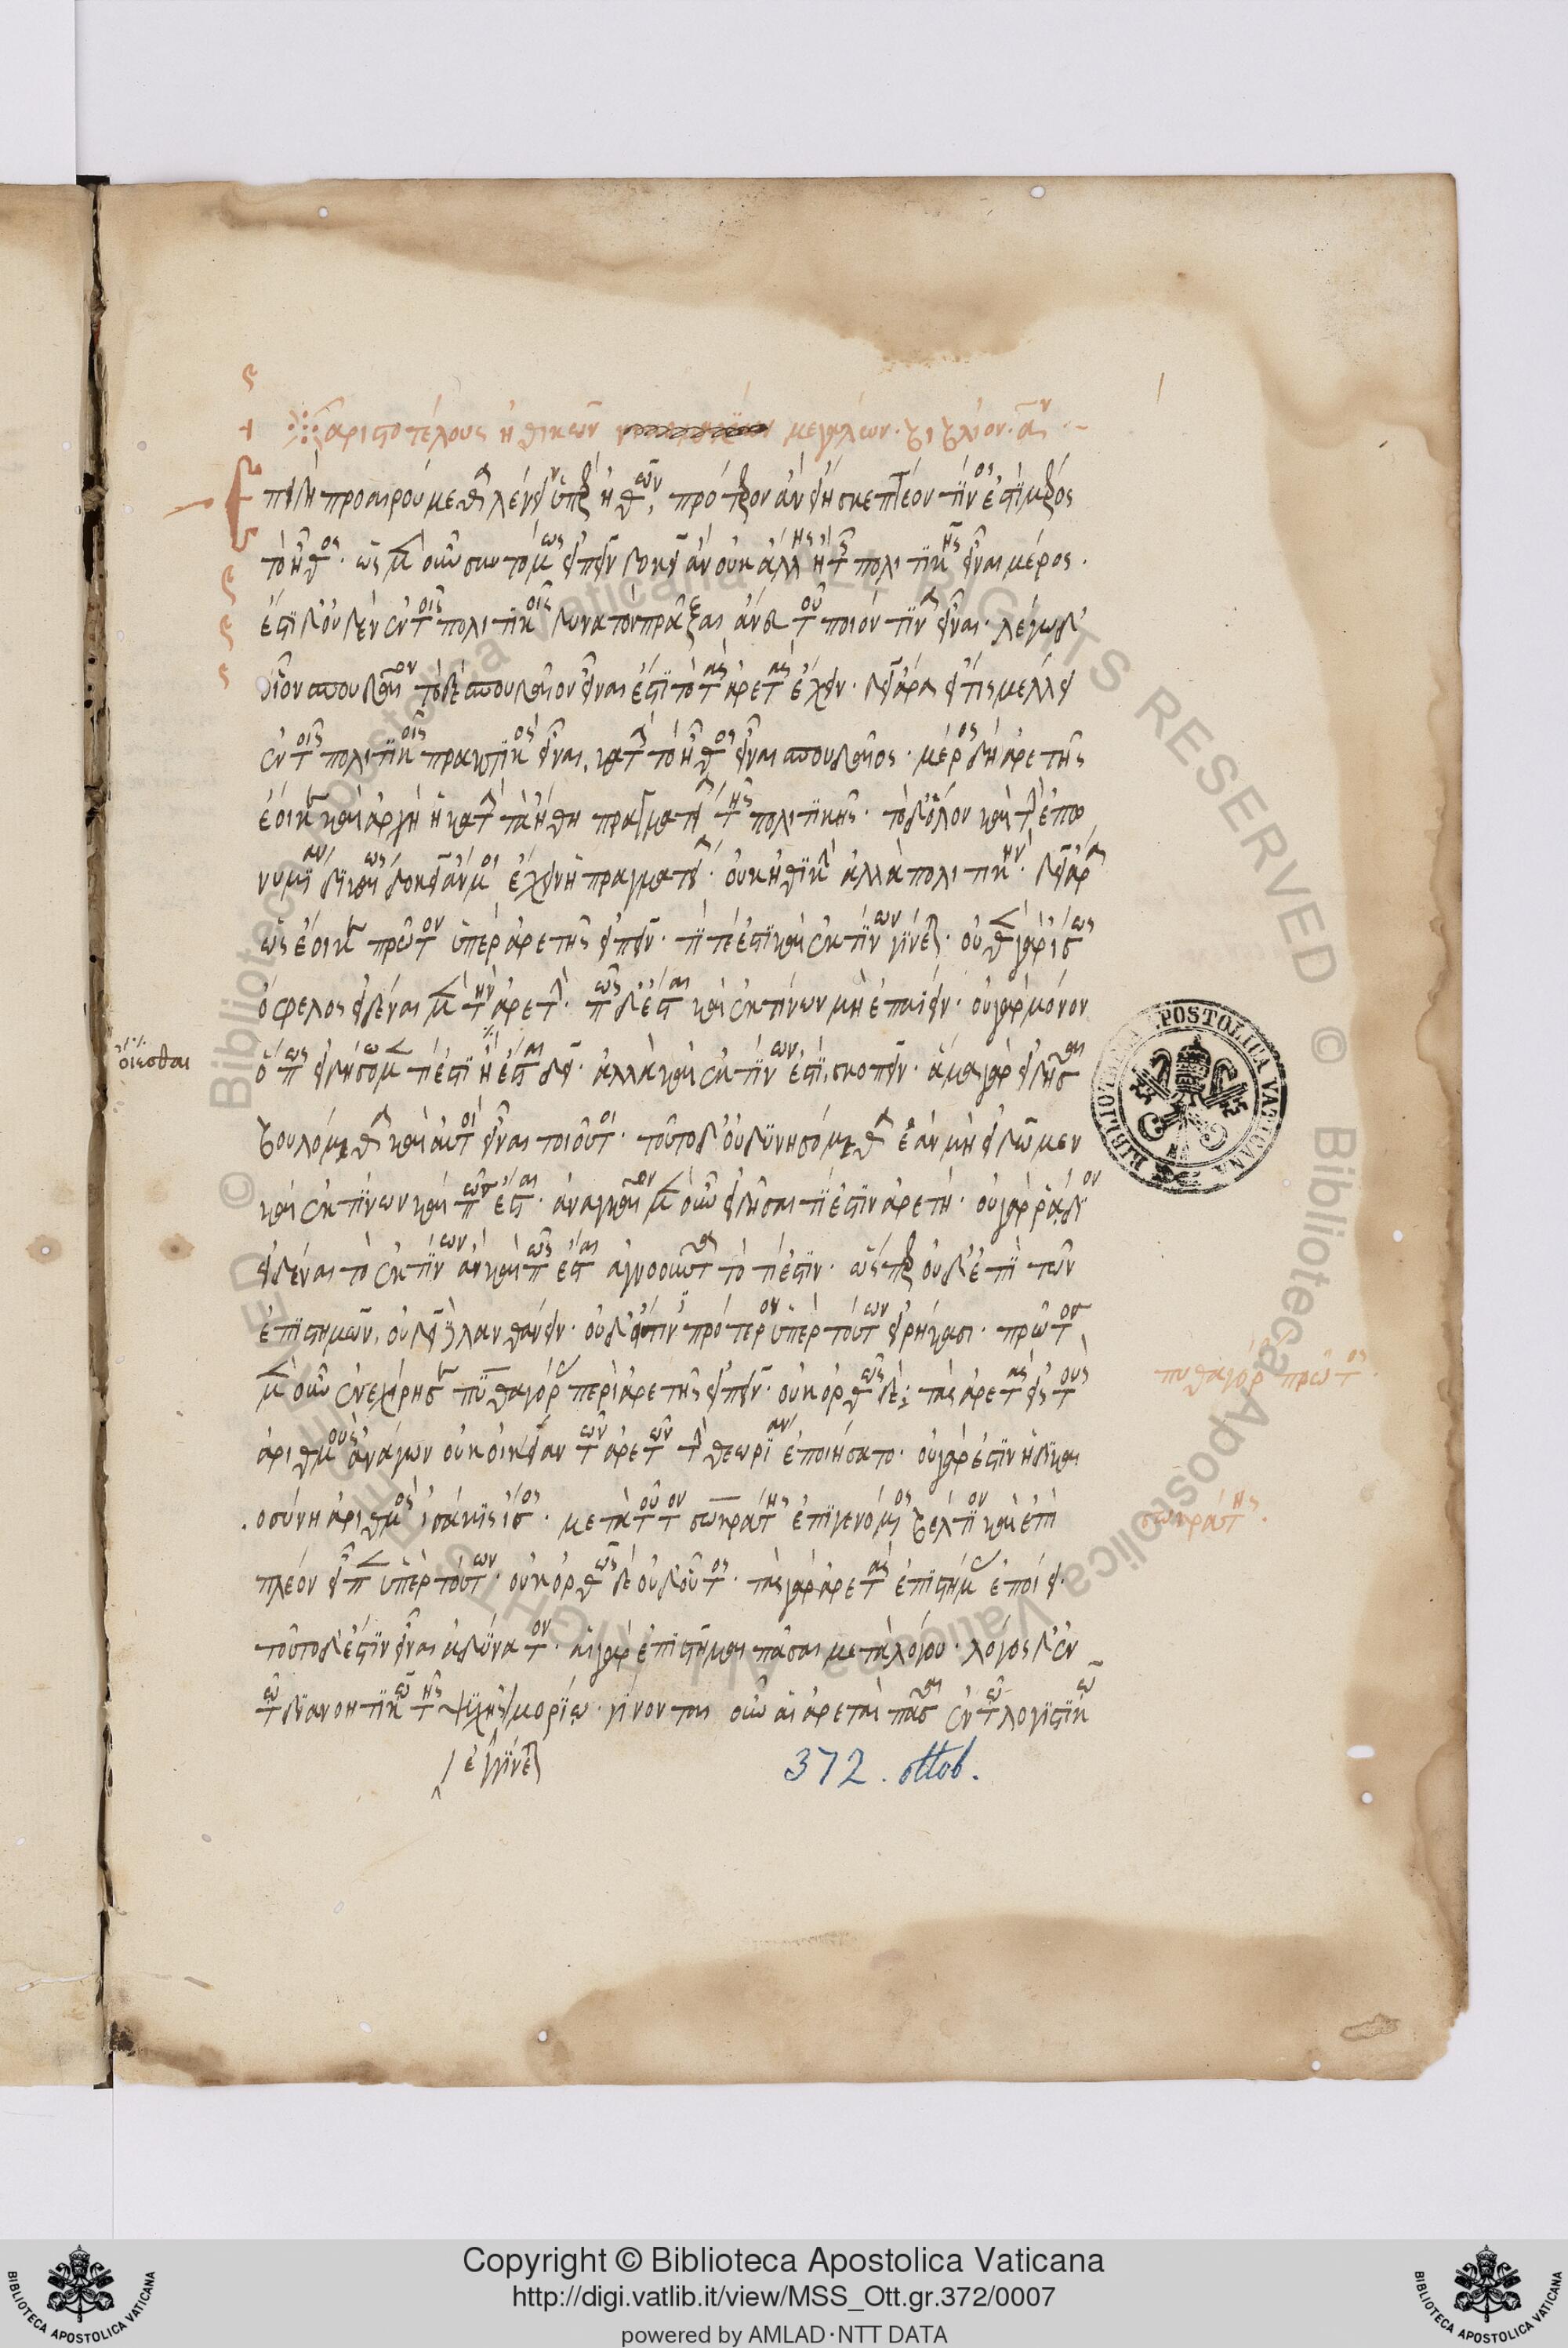 ἀριστοτέλους ἠθικῶν μεγάλων. βιβλίον. α^ον
Ἐπειδὴ προαιρούμεθα λέγειν ὑπὲρ ἠθῶν, πρότερον ἂν εἴη σκεπτέον τίνος ἐστὶ μέρος
τὸ ἦθος. ὡς μὲν οὖν συντόμως εἰπεῖν δοκεῖ ἂν οὐκ ἄλλης ἢ τῆς πολιτικῆς εἶναι μέρος.
ἔστι δ' οὐδὲν ἐν τοῖς πολιτικοῖς δυνατὸν πρᾶξαι ἄνευ τοῦ ποιόν τινα εἶναι. λέγω δ'
οἷον σπουδαῖον τὸ δὲ σπουδαῖον εἶναι ἐστὶ τὸ τὰς ἀρετὰς ἔχειν. δεῖ ἄρα εἴ τις μέλλει
ἐν τοῖς πολιτικοῖς πρακτικὸς εἶναι, κατὰ τὸ ἦθος εἶναι σπουδαῖος. μέρος δὴ ἀρετῆς
ἔοικε καὶ ἀρχὴ ἡ κατὰ τὰ ἤθη πραγματεία τῆς πολιτικῆς. τὸ δ' ὅλον καὶ τὴν ἐπω
νυμίαν δικαίως δοκεῖ ἄν μοι ἔχειν ἡ πραγματεία. οὐκ ἠθικὴν ἀλλὰ πολιτικήν. δεῖ ἄρα
ὡς ἔοικε πρῶτον ὑπὲρ ἀρετῆς εἰπεῖν. τί τέ ἐστι καὶ ἐκ τίνων γίνεται. οὐθὲν γὰρ ἴσως
ὄφελος εἰδέναι μὲν τὴν ἀρετήν. πῶς δὲ ἔσται καὶ ἐκ τίνων μὴ ἐπαΐειν. οὐ γὰρ μόνον
οἴεσθαι
ὅπως εἰδήσωμεν τί ἐστι ἢ ἔσται δεῖ. ἀλλὰ καὶ ἐκ τίνων ἐστὶ, σκοπεῖν. ἅμα γὰρ εἰδῆσαι
βουλόμεθα καὶ αὐτοὶ εἶναι τοιοῦτοι. τοῦτο δ' οὐ δυνησόμεθα ἐὰν μὴ εἰδῶμεν
καὶ ἐκ τίνων καὶ πῶς ἔσται. ἀναγκαῖον μὲν οὖν εἰδῆσαι τί ἐστιν ἀρετή. οὐ γὰρ ῥᾴδιον
εἰδέναι τὸ ἐκ τίνων ἂν καὶ πῶς ἔσται ἀγνοοῦντα τὸ τί ἐστιν. ὥσπερ οὐδ' ἐπὶ τῶν
ἐπιστημῶν. οὐ δεῖ δὲ λανθάνειν. οὐδ' εἴ τινες πρότερον ὑπὲρ τούτων εἰρήκασι. πρῶτον
μὲν οὖν ἐνεχείρησε πυθαγόρας περὶ ἀρετῆς εἰπεῖν. οὐκ ὀρθῶς δέ: τὰς ἀρετὰς εἰς τοὺς
πυθαγόρας πρῶτος.
ἀριθμοὺς ἀνάγων οὐκ οἰκείαν τῶν ἀρετῶν τὴν θεωρίαν ἐποιήσατο. οὐ γάρ ἐστιν ἡ δικαι
οσύνη ἀριθμὸς ἰσάκις ἴσος. μετὰ τοῦτον σωκράτης ἐπιγενόμενος βέλτιον καὶ ἐπὶ
σωκράτης.
πλέον εἶπεν ὑπὲρ τούτων. οὐκ ὀρθῶς δὲ οὐδ' οὗτος. τὰς γὰρ ἀρετὰς ἐπιστήμας ἐποίει.
τοῦτο δ' ἐστὶν εἶναι ἀδύνατον. αἱ γὰρ ἐπιστῆμαι πᾶσαι μετὰ λόγου. λόγος δ' ἐν
τῷ διανοητικῷ τῆς ψυχῆς μορίῳ. γίνονται οὖν αἱ ἀρεταὶ πᾶσαι ἐν τῷ λογιστικῷ
ἐγγίνεται
372. ottob.
BIBLIOTECA APOSTOLICA VATICANA
Copyright © Biblioteca Apostolica Vaticana
http://digi.vatlib.it/view/MSS_Ott.gr.372/0007
powered by AMLAD·NTT DATA